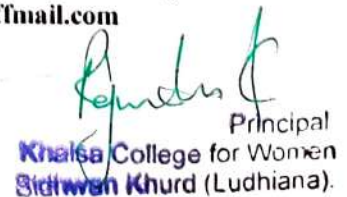 ffmail.com
Principal
Khalsa College for Women
Sidhwan Khurd (Ludhiana).